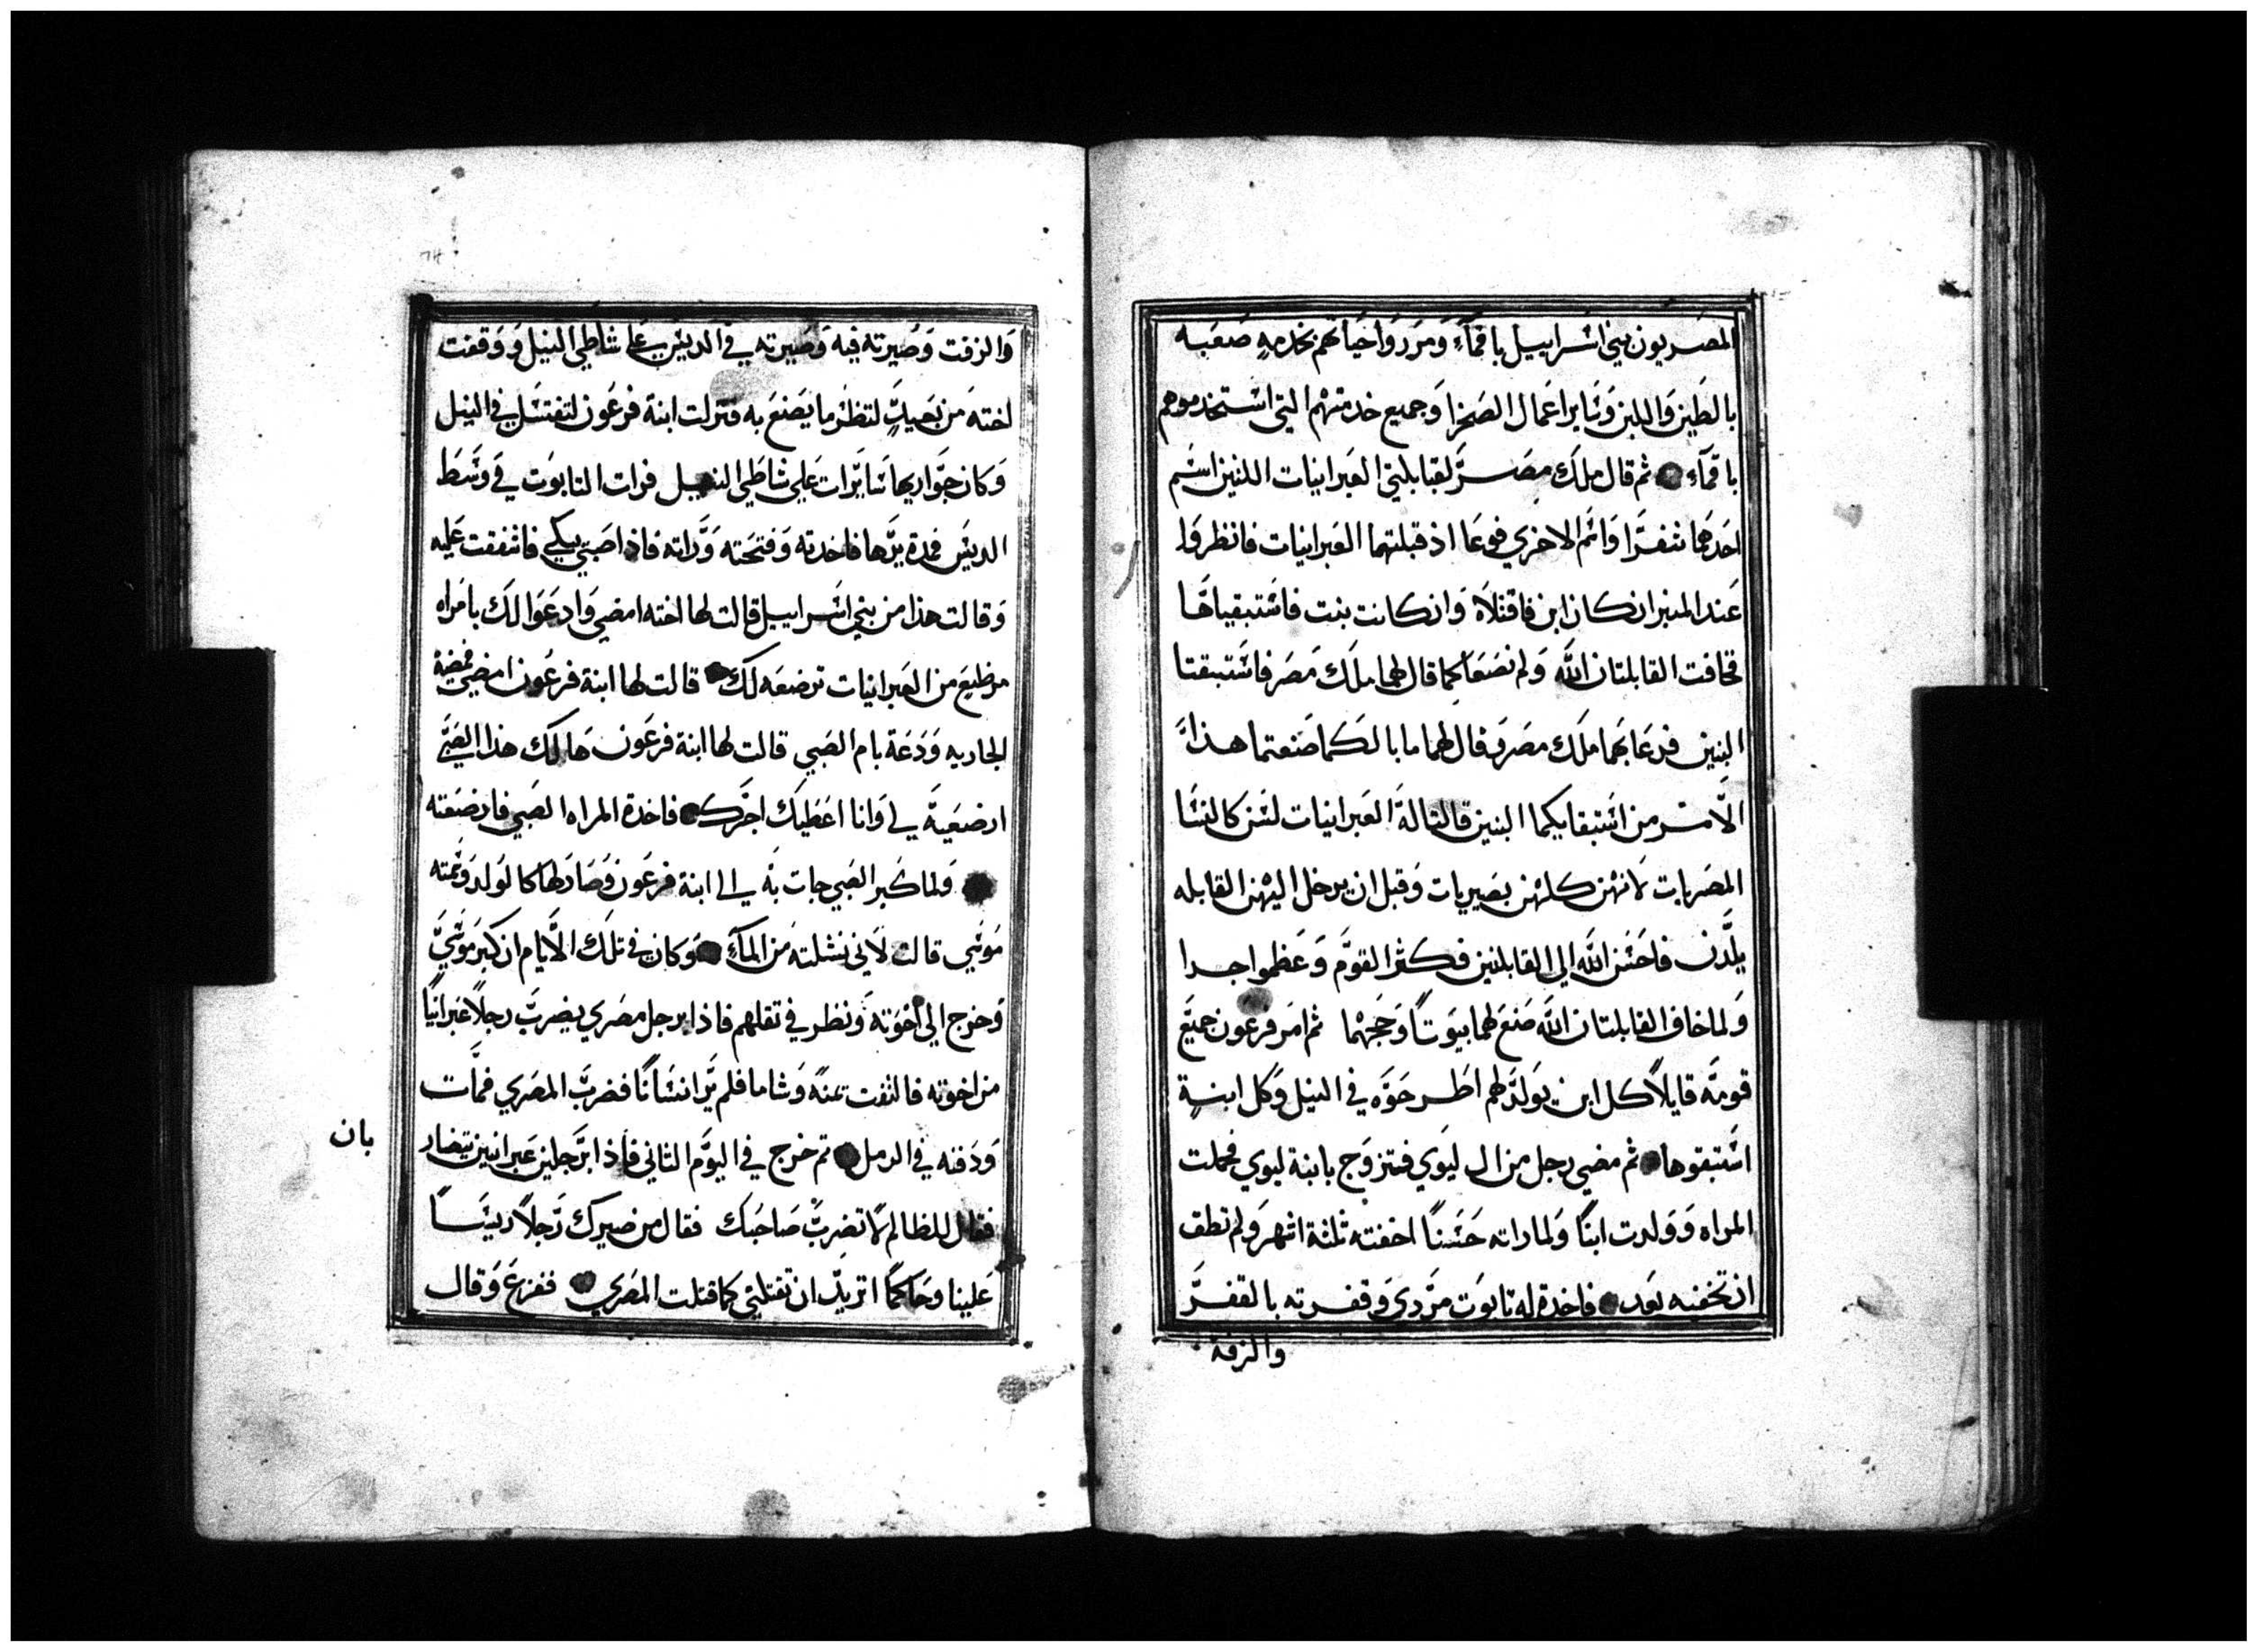 المصريون بني اسراييل باقماء ومرروا حياتهم بخدمه صعبه
بالطين واللبن وساير اعمال الصحرا وجميع خدمتهم التي استخدموهم
باقماء ثم قال ملك مصر لقبابلتي العبرانيات اللتين اسم
احدهما شفرا واسم الاخري فوعا اذ قبلتهما العبرانيات فانظروا
عند المنبر ان كان ابن فاقتلاه وان كانت بنت فاستبقياها
فخافت القابلتان الله ولم نصنعا كما قال لهما ملك مصر فاستبقتا
البنين فدعا بهما ملك مصر وقال لهما ما بالكما صنعتما هذا
الامر من استبقايكما البنين قالتا له العبرانيات لسن كالنسا
المصريات لانهن كلهن بصيريات وقبل ان يدخل اليهن القابله
يلدن فاحسن الله الي القابلتين فكثر القوم وعظموا جدا
ولما خاف القابلتان الله صنع لهما بيوتا وحججهما ثم امر فرعون جميع
قومه قايلا كل ابن يولد لهم اطرحوه في النيل وكل ابنة
استبقوها ثم مضي رجل من ال ليوي فتزوج بابنة ليوي فحملت
المراه وولدت ابنا ولما راته حسنا اخفته ثلثة اشهر ولم تطق
ان تخفيه بعد فاخدة له تابوت مردي وقفرته بالقفر
والزفة
والزفت وصيرته فيه وصيرته في الديس علي شاطي النيل ووقفت
اخته من بعيد لتنظر ما يصنع به فنزلت ابنة فرعون لتغتسل في النيل
وكان جواريها سايرات علي شاطي النيل فرات التابوت في وسط
الديس فمدة يدها فاخدته وفتحته وراته فاذا صبي يبكي فاشفقت عليه
وقالت هذا من بني اسراييل قالت لها اخته امضي وادعوا لك بامراه
مرظيع من العبرانيات ترضعه لك قالت لها ابنة فرعون امضي فمضة
الجاريه ودعة بام الصبي قالت لها ابنة فرعون هالك هذا الصبي
ارضعيه لي وانا اعطيك اجرك فاخدة المراه الصبي فارضعته
ولما كبر الصبي جات به الي ابنة فرعون وصار لها كالولد وسمته
موسي قالت لاني نشلته من الماء وكان في تلك الايام ان كبر موسي
وخرج الي اخوته ونظر في تقلهم فاذا برجل مصري يضرب رجلا عبرانيا
من اخوته فالتفت يمنه وشاما فلم ير انسانا فضرب المصري فمات
ودفنه في الرمل تم خرج في اليوم الثاني فاذا برجلين عبرانيين يتضار
بان
فقال للظالم لا تضرب صاحبك فقال من صيرك رجلا رييسا
علينا وحاكما اتريد ان تقتلني كما قتلت المصري ففزع وقال